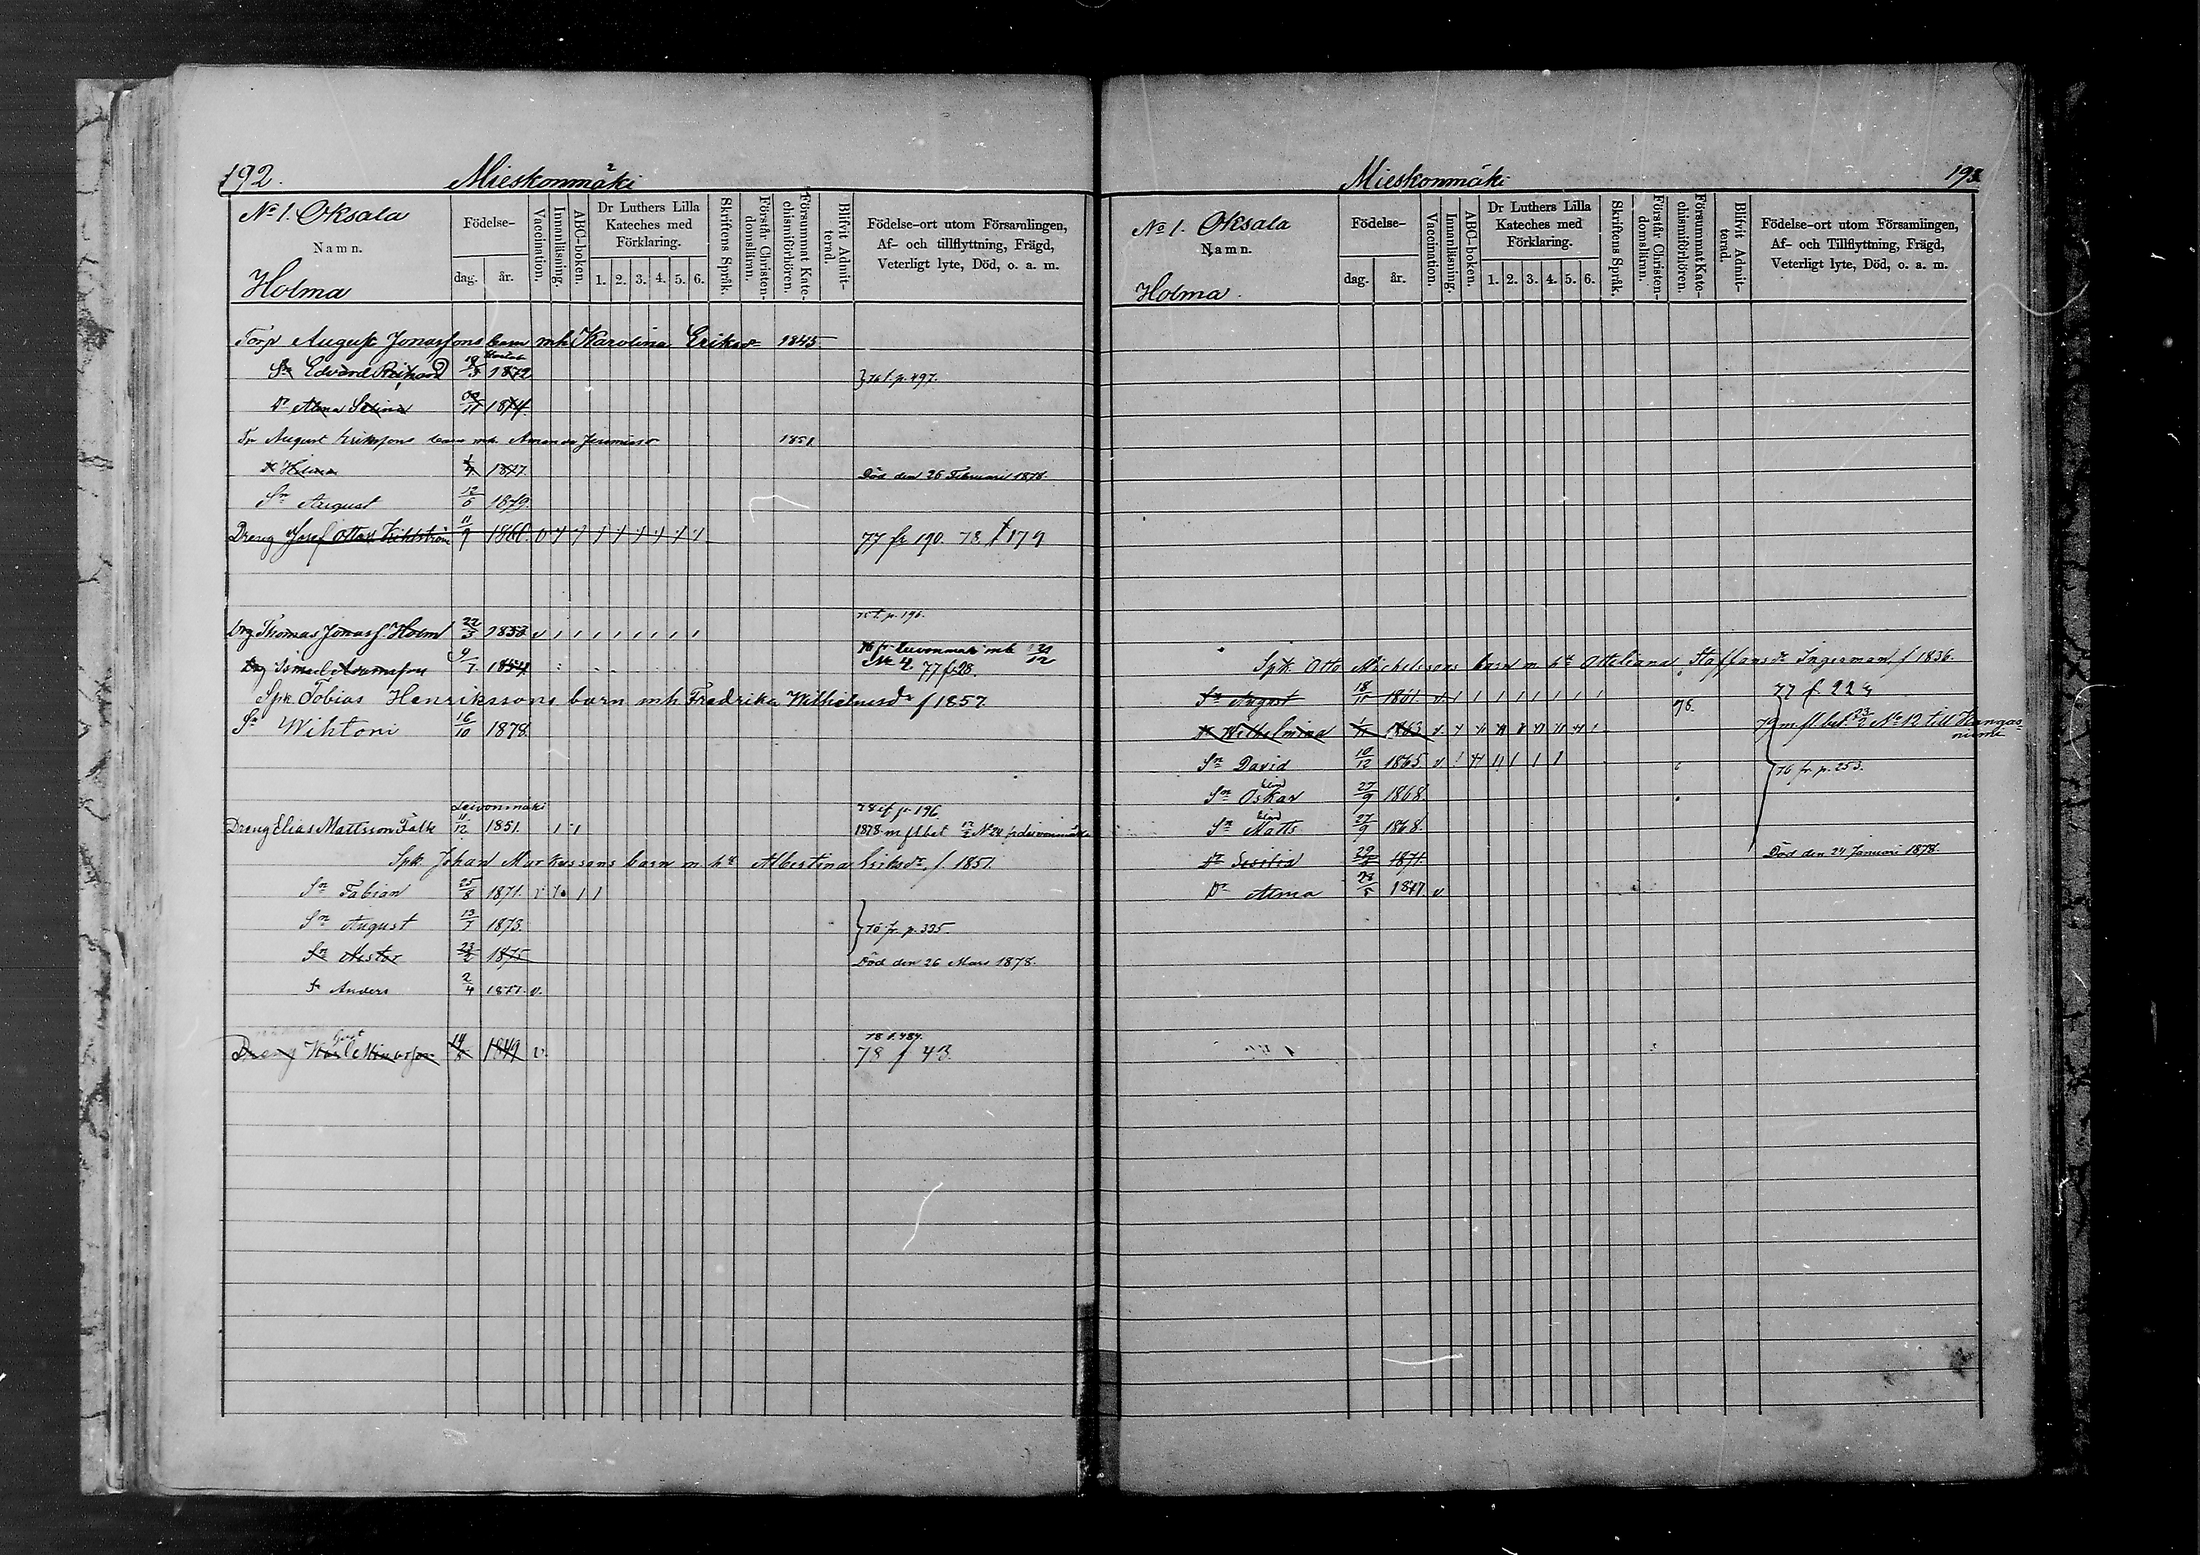 192.
Mieskonmäki
No 1. Oksala
Namn.
Holma
Födelse-
dag. år.
Vaccination.
Innanläsning.
ABC-boken.
Dr Luthers Lilla
Kateches med
Förklaring.
1. 2. 3. 4. 5. 6.
Skriftens Språk.
Förstår Christen-
domsläran.
Försummat Kate-
chismiförhören.
Blifvit Admit-
terad.
Födelse-ort utom Församlingen,
Af- och tillflyttning, Frägd,
Veterligt lyte, Död, o. a. m.
Torp August Jonassons barn mh Karolina Eriksdr 1845
Sn Edvard 1872
76 f p. 497.
Dr Alma 1874.
Tp August Erikssons barn mh. Amanda 1851
1/7 1877. Död den 26 Februari 1878.
Sn August 12/6 1879.
Dreng Josef Ottoss. 11/9 1861. 77 fr 190. 78 t 179
p. 196.
Drg Thomas Jonass. Holm 22/3 1853 v
9/7 1854. 76 fr Leivonmäki mb
No 4 77 f. 28.
Spk Tobias Henrikssons barn mh Fredrika Wilhelmsdr f 1857
Sn Wihtori 16/10 1878.
Leivonmäki
78 p. 196
Dreng Elias Mattsson Falk 11/12 1851. 1878 m fl bet No 24
Spk Johan Markussons barn m hu Albertina Eriksdr f. 1851.
Sn Fabian 25/8 1871. v
Sn August 13/7 1873. 76 fr p. 335
Sn Nestor 23/2 1875 Död den 26 Mars 1878.
Sn Anders 2/4 1877. v.
78 f. 484.
Dreng Karl 1849 v. 78 f 43
Mieskonmäki
193
No 1. Oksala
Namn.
Holma
Födelse-
dag. år.
Vaccination.
Innanläsning.
ABC-boken.
Dr Luthers Lilla
Kateches med
Förklaring.
1. 2. 3. 4. 5. 6.
Skriftens Språk.
Förstår Christen-
domsläran.
Försummat Kate-
chismiförhören.
Blifvit Admit-
terad.
Födelse-ort utom Församlingen,
Af- och Tillflyttning, Frägd,
Veterligt lyte, Död, o. a. m.
Spk Otto Michelssons barn m hu Ottiliana Staffansdr Ingerman f 1836.
Sn August 18/11 1861. v. 77 f 224
Dr Wilhelmina 1/11 1863 v. 76. 79 m fl. bet 23/2 No 12 till Kangas-
niemi
Sn David 10/12 1865 v 76 fr p. 253.
Sn Oskar 27/9 1868
Sn Matts 27/9 1868.
Dr 1871. Död den 24 Januari 1878.
Dr Alma 28/5 1877 v